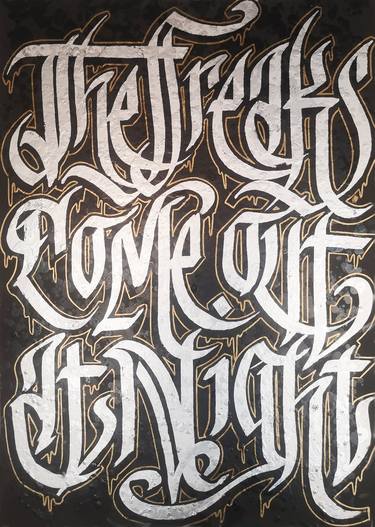 The Freaks
Come Out
At Night